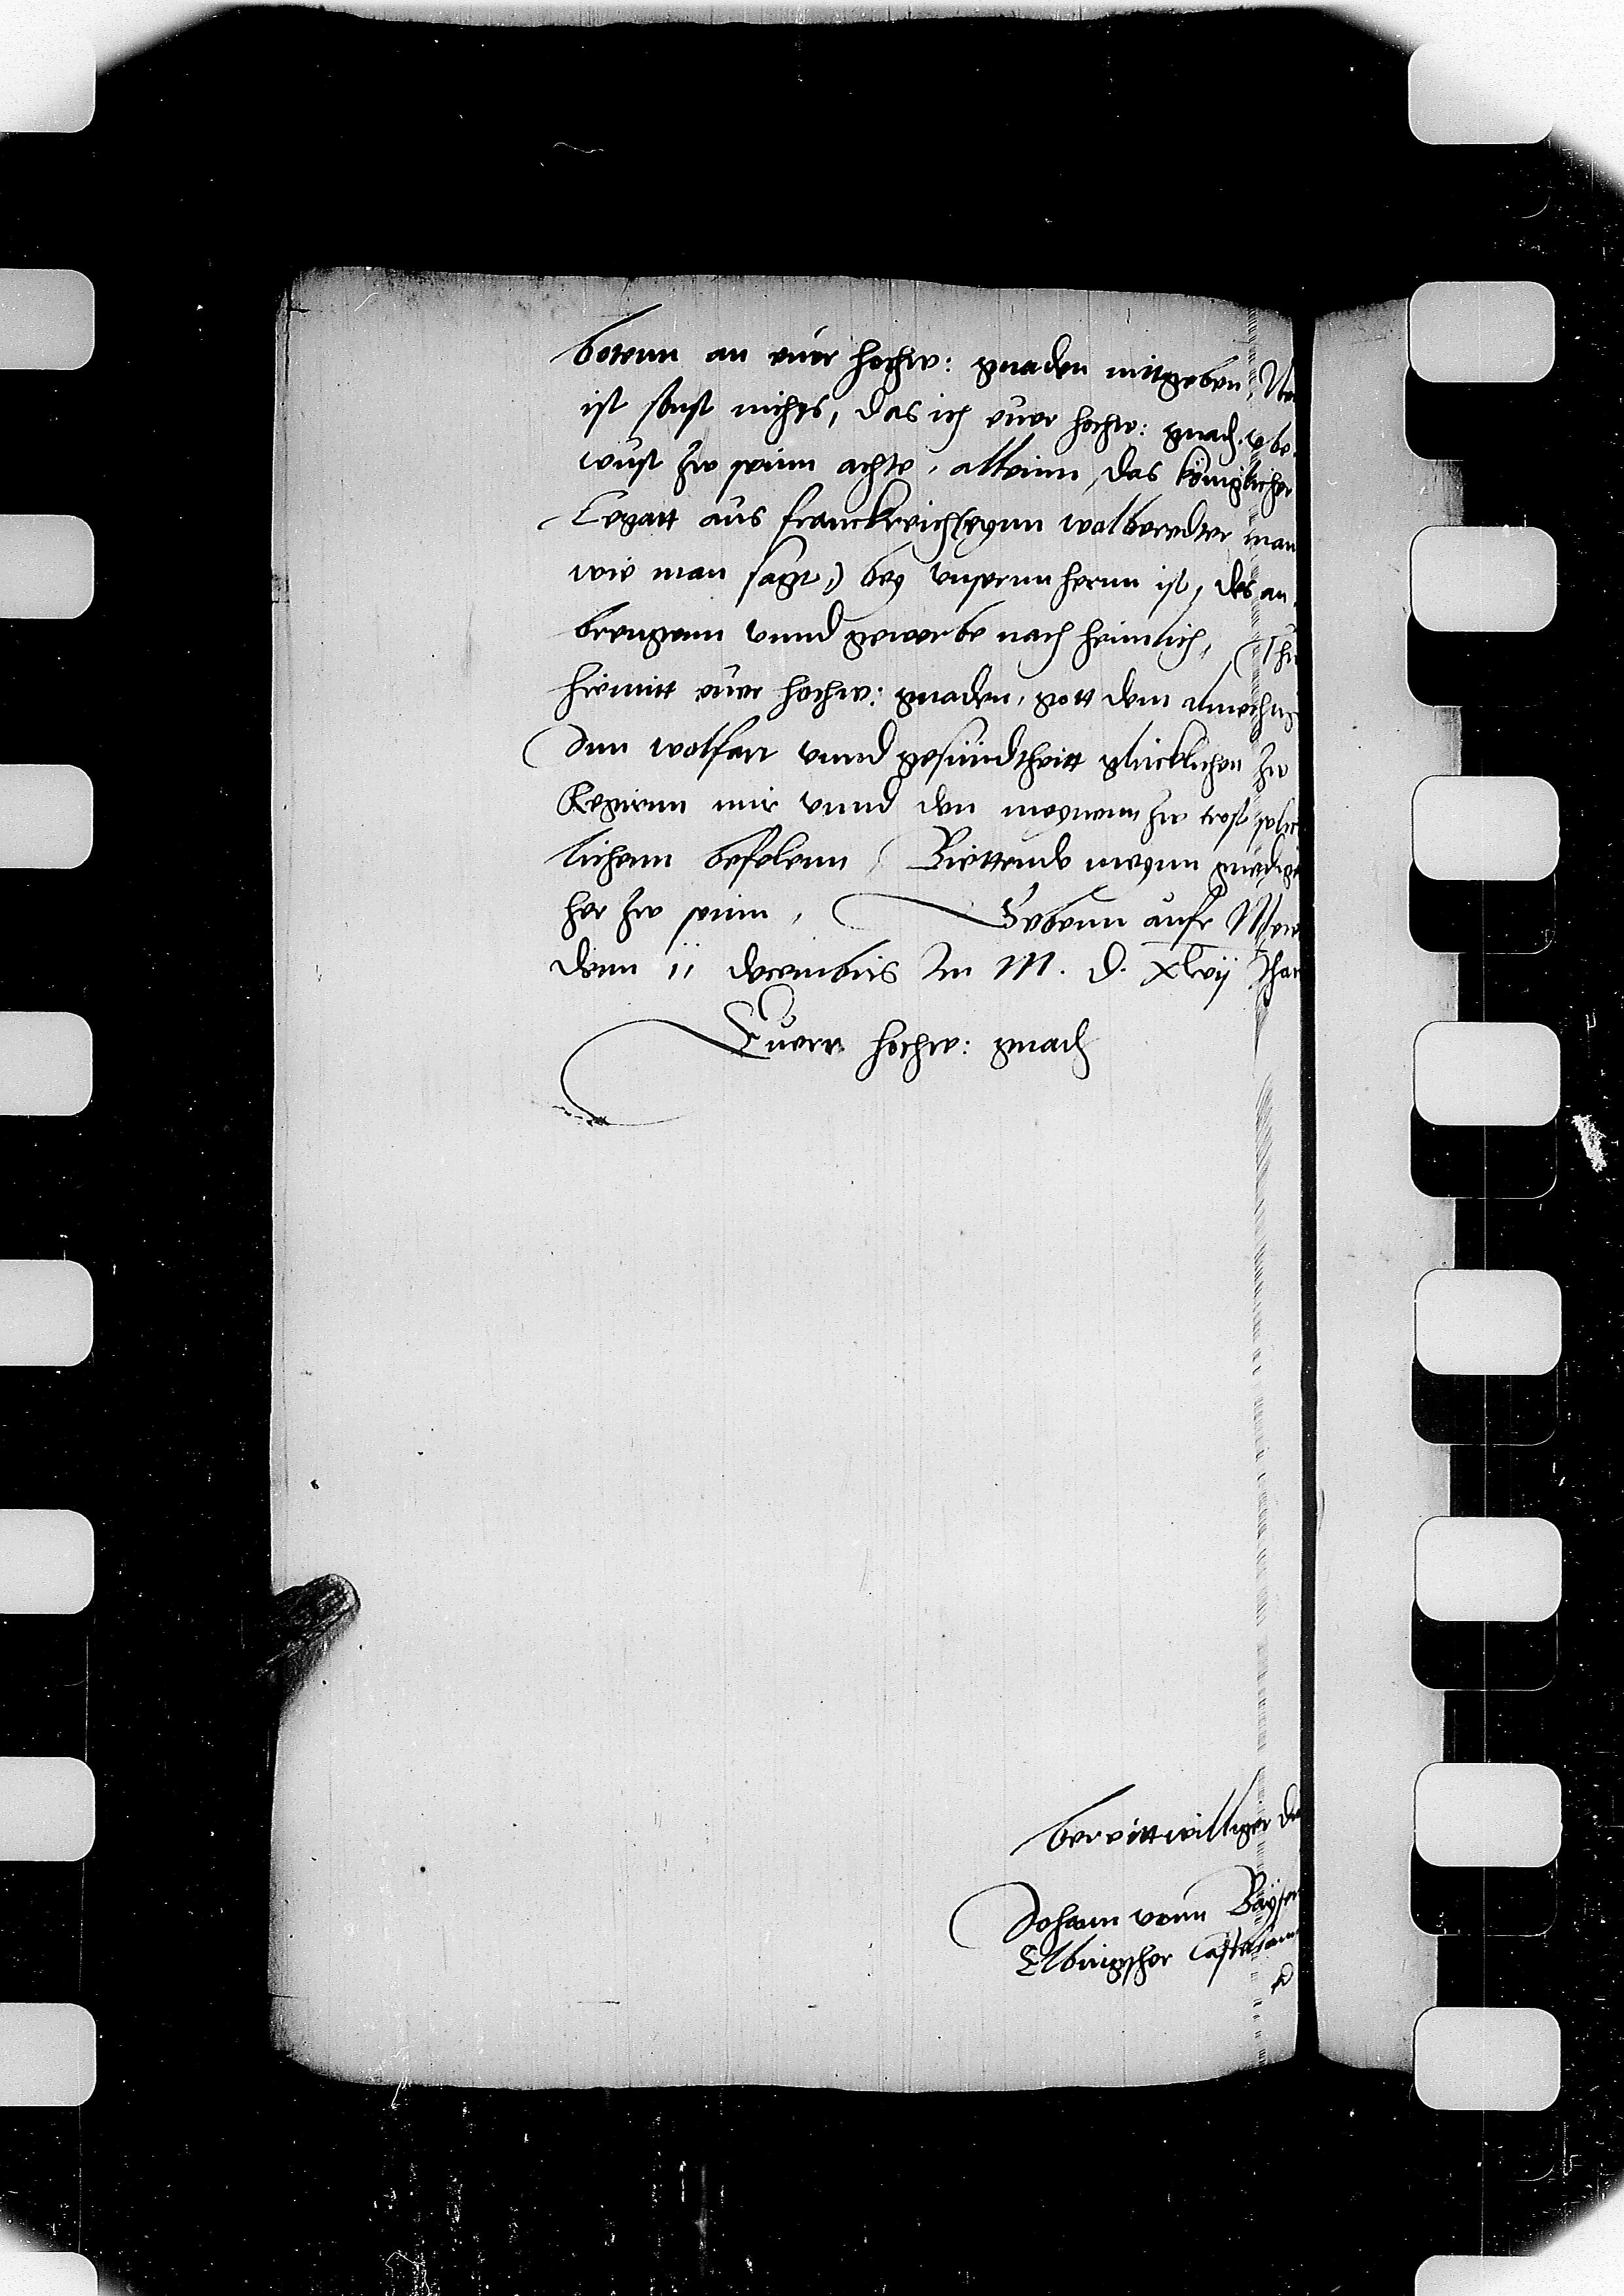 botenn an euer hochw: gnaden mitgeben,
ist sonst nichts, das ich euer hochw: gnad. vbe-
wust zw seinn achte, alleinn, das königlicher
Legatt aus franckreich (eynn wolberedter man
wie man sagt,) bey vnsernn hernn ist, des an-
brengenn vnnd gewerbe nach heimlich,
hiemitt euer hochw: gnaden, gott dem almechtig
Inn wolfart vnnd gesundtheitt glucklichen zw
Regirnn mir vnnd den meynenn zw trost
lichenn befelenn, Bittende meynn gnedige
her zw seinn, Gebenn aufr
denn ii decembris Im M. d. xlvij Ihar
Euerr hochw: gnad
bereittwilliger
Johann vonn Baysen
Elbingscher Castelann